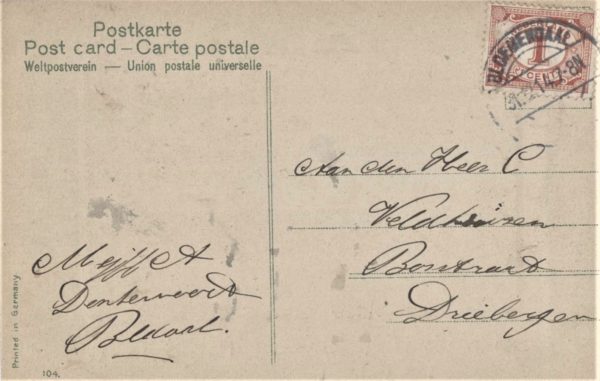 Postkarte
Post card – Carte postale
Weltpostverein — Union postale universelle
BLOEMENDAAL
7-8N
1
CENT
Aan den Heer C
Veldhuizen
Driebergen
Mejff A
Printed in Germany
104.